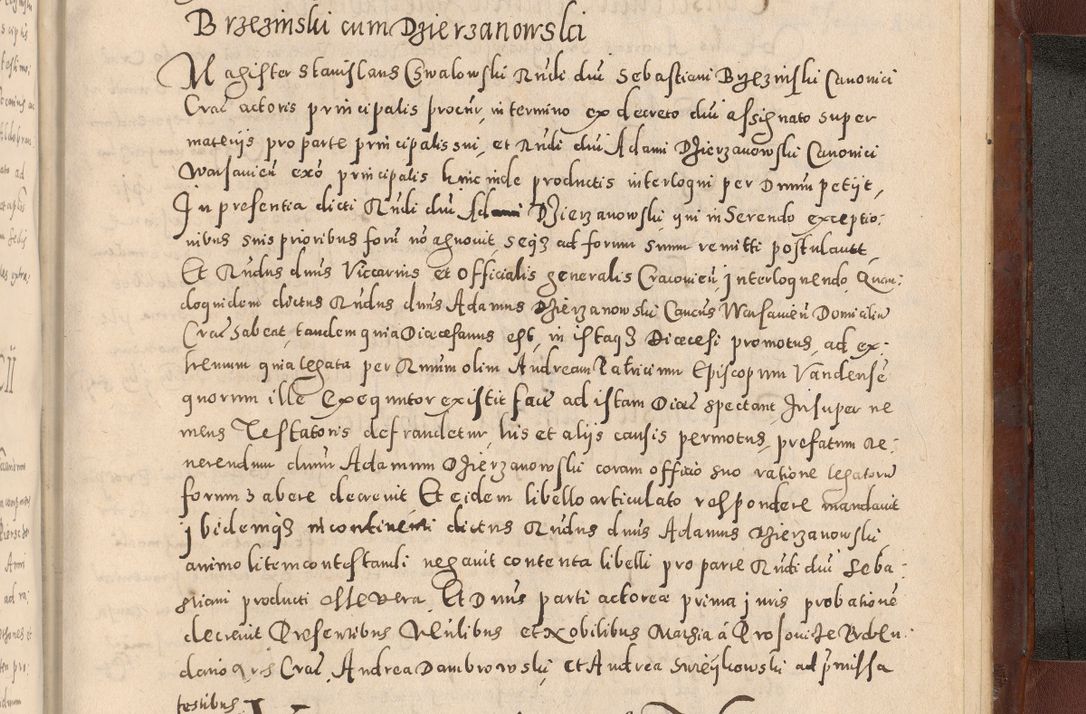 Brzezinski cum Dzierzanowski
Magister Stanislaus Cswalowski Rndi dni Sebastiani Brzezinski Canonici
Crac actoris principalis procur, in termino ex decreto dni assignato super
materijs pro parte principalis sui, et Rndi dni Adami Dzierzanowski Canonici
Warsavien exo principalis hincinde productis interloqui per Dnum petijt,
In presentia dicti Rndi dni Adami Dzierzanowski, qui inserendo exceptio:
nibus suis prioribus foru no agnovit, seqz ad forum suum remitti postulavit,
Et Rndus dnus Viccarius et officialis generalis Cracovien, interloquendo, Quan:
doquidem dictus Rndus dnus Adamus Dzierzanowski Cancus Warsavien Domiciliu
Crac habeat, tandem quia Diocesanus est, in istaqz Diecesi promotus, ad ex:
tremum quia legata per Rmum olim Andream Patricium Episcopum Vandense
quorum ille exequutor existit facit ad istam Dioc spectant, Insuper ne
mens Testatoris defraudetur, his et alijs causis permotus, prefatum Re:
nerendum dnum Adamum Dzierzanowski coram officio suo ratione legatoru
forum habere decrevit Et eidem libello articulato respondere mandavit
ibidemqz in continenti dictus Rndus dnus Adamus Dzierzanowski
animo litem contestandi negavit contenta libelli pro parte Rndi dni Seba:
stiani producti esse vera. Et Dnus parti actorea prima juris probatione
decrevit Presentibus Venlibus et Nobilibus Mathia á Prosovice Prben:
dario Crac, Andrea Dambrowski, et Andrea Swieykowski ad pmissa
testibus